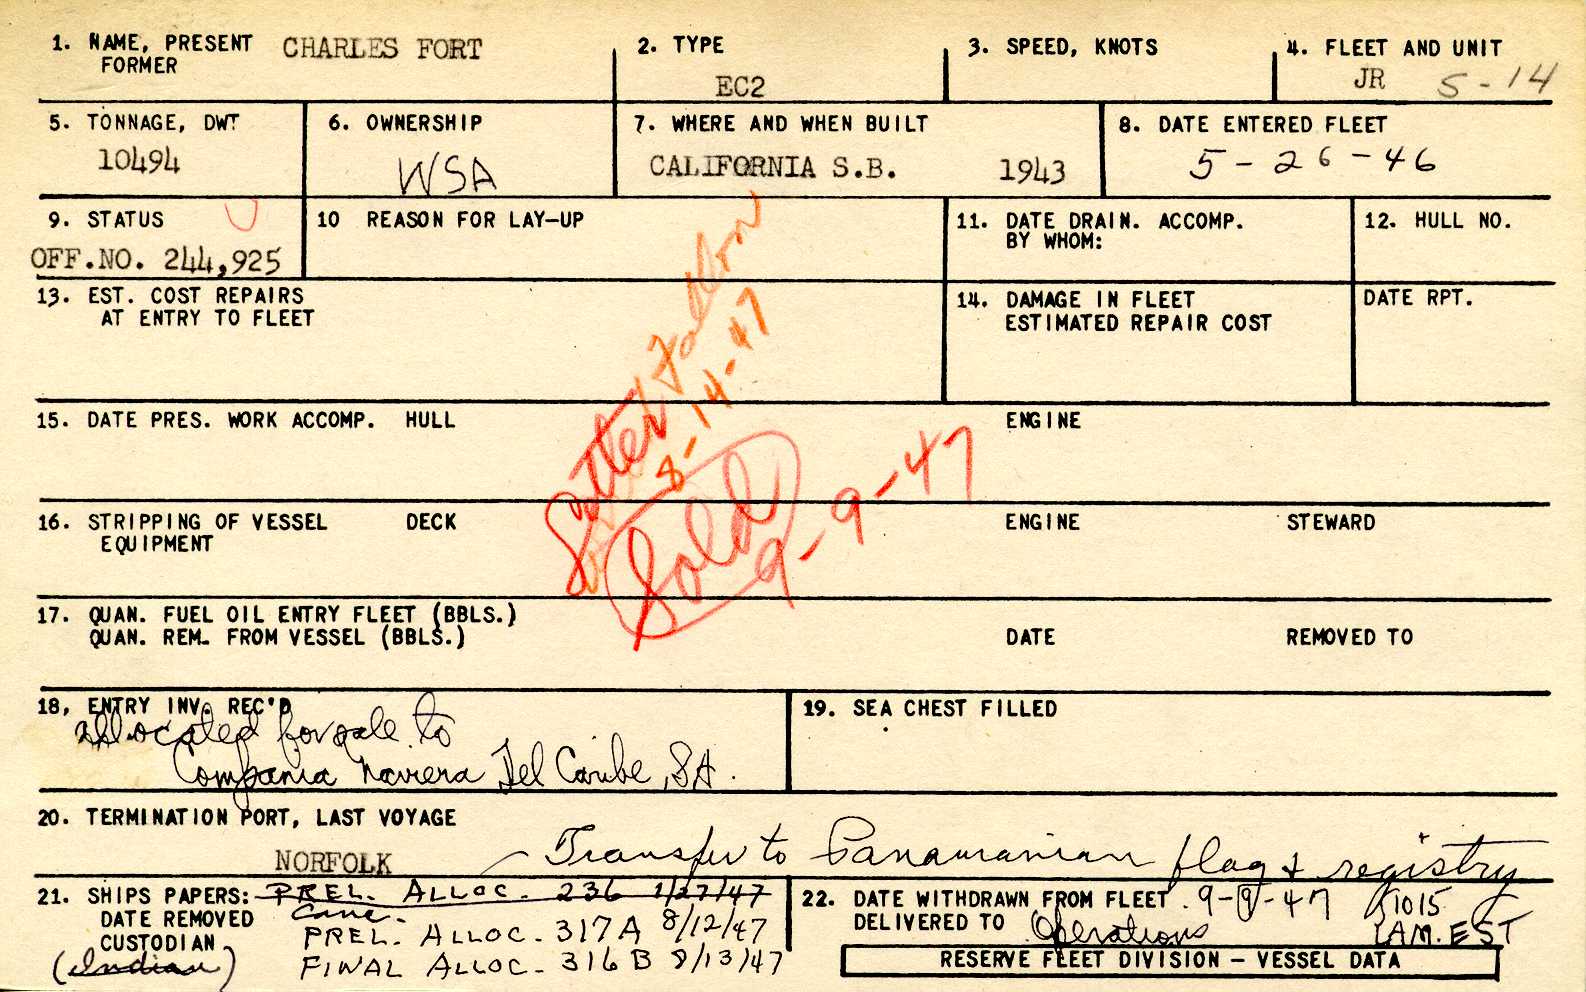 1. NAME, PRESENT CHARLES FORT
FORMER
2. TYPE
EC2
3. SPEED, KNOTS
4. FLEET AND UNIT
JR 5-14
5. TONNAGE, DWT
10494
6. OWNERSHIP
WSA
7. WHERE AND WHEN BUILT
CALIFORNIA S.B. 1943
8. DATE ENTERED FLEET
5-26-46
9. STATUS
OFF.NO. 244,925
10 REASON FOR LAY-UP
11. DATE DRAIN. ACCOMP.
BY WHOM:
12. HULL NO.
13. EST. COST REPAIRS
AT ENTRY TO FLEET
14. DAMAGE IN FLEET
ESTIMATED REPAIR COST
DATE RPT.
8-14-47
15. DATE PRES. WORK ACCOMP. HULL
ENGINE
Sold
9-9-47
16. STRIPPING OF VESSEL DECK
EQUIPMENT
ENGINE
STEWARD
17. QUAN. FUEL OIL ENTRY FLEET (BBLS.)
QUAN. REM. FROM VESSEL (BBLS.)
DATE
REMOVED TO
18, ENTRY INV. REC'D
allocated for sale to
Compania Naviera Del Caribe, SA.
19. SEA CHEST FILLED
20. TERMINATION PORT, LAST VOYAGE
NORFOLK
Transfer to Panamanian flag & registry
21. SHIPS PAPERS: PREL. ALLOC. 236 1/27/47
DATE REMOVED Canc.
CUSTODIAN PREL. ALLOC. 317A 8/12/47
(Indian) FINAL ALLOC. 316B 8/13/47
22. DATE WITHDRAWN FROM FLEET 9-9-47 1015
DELIVERED TO Operations AM. EST
RESERVE FLEET DIVISION - VESSEL DATA